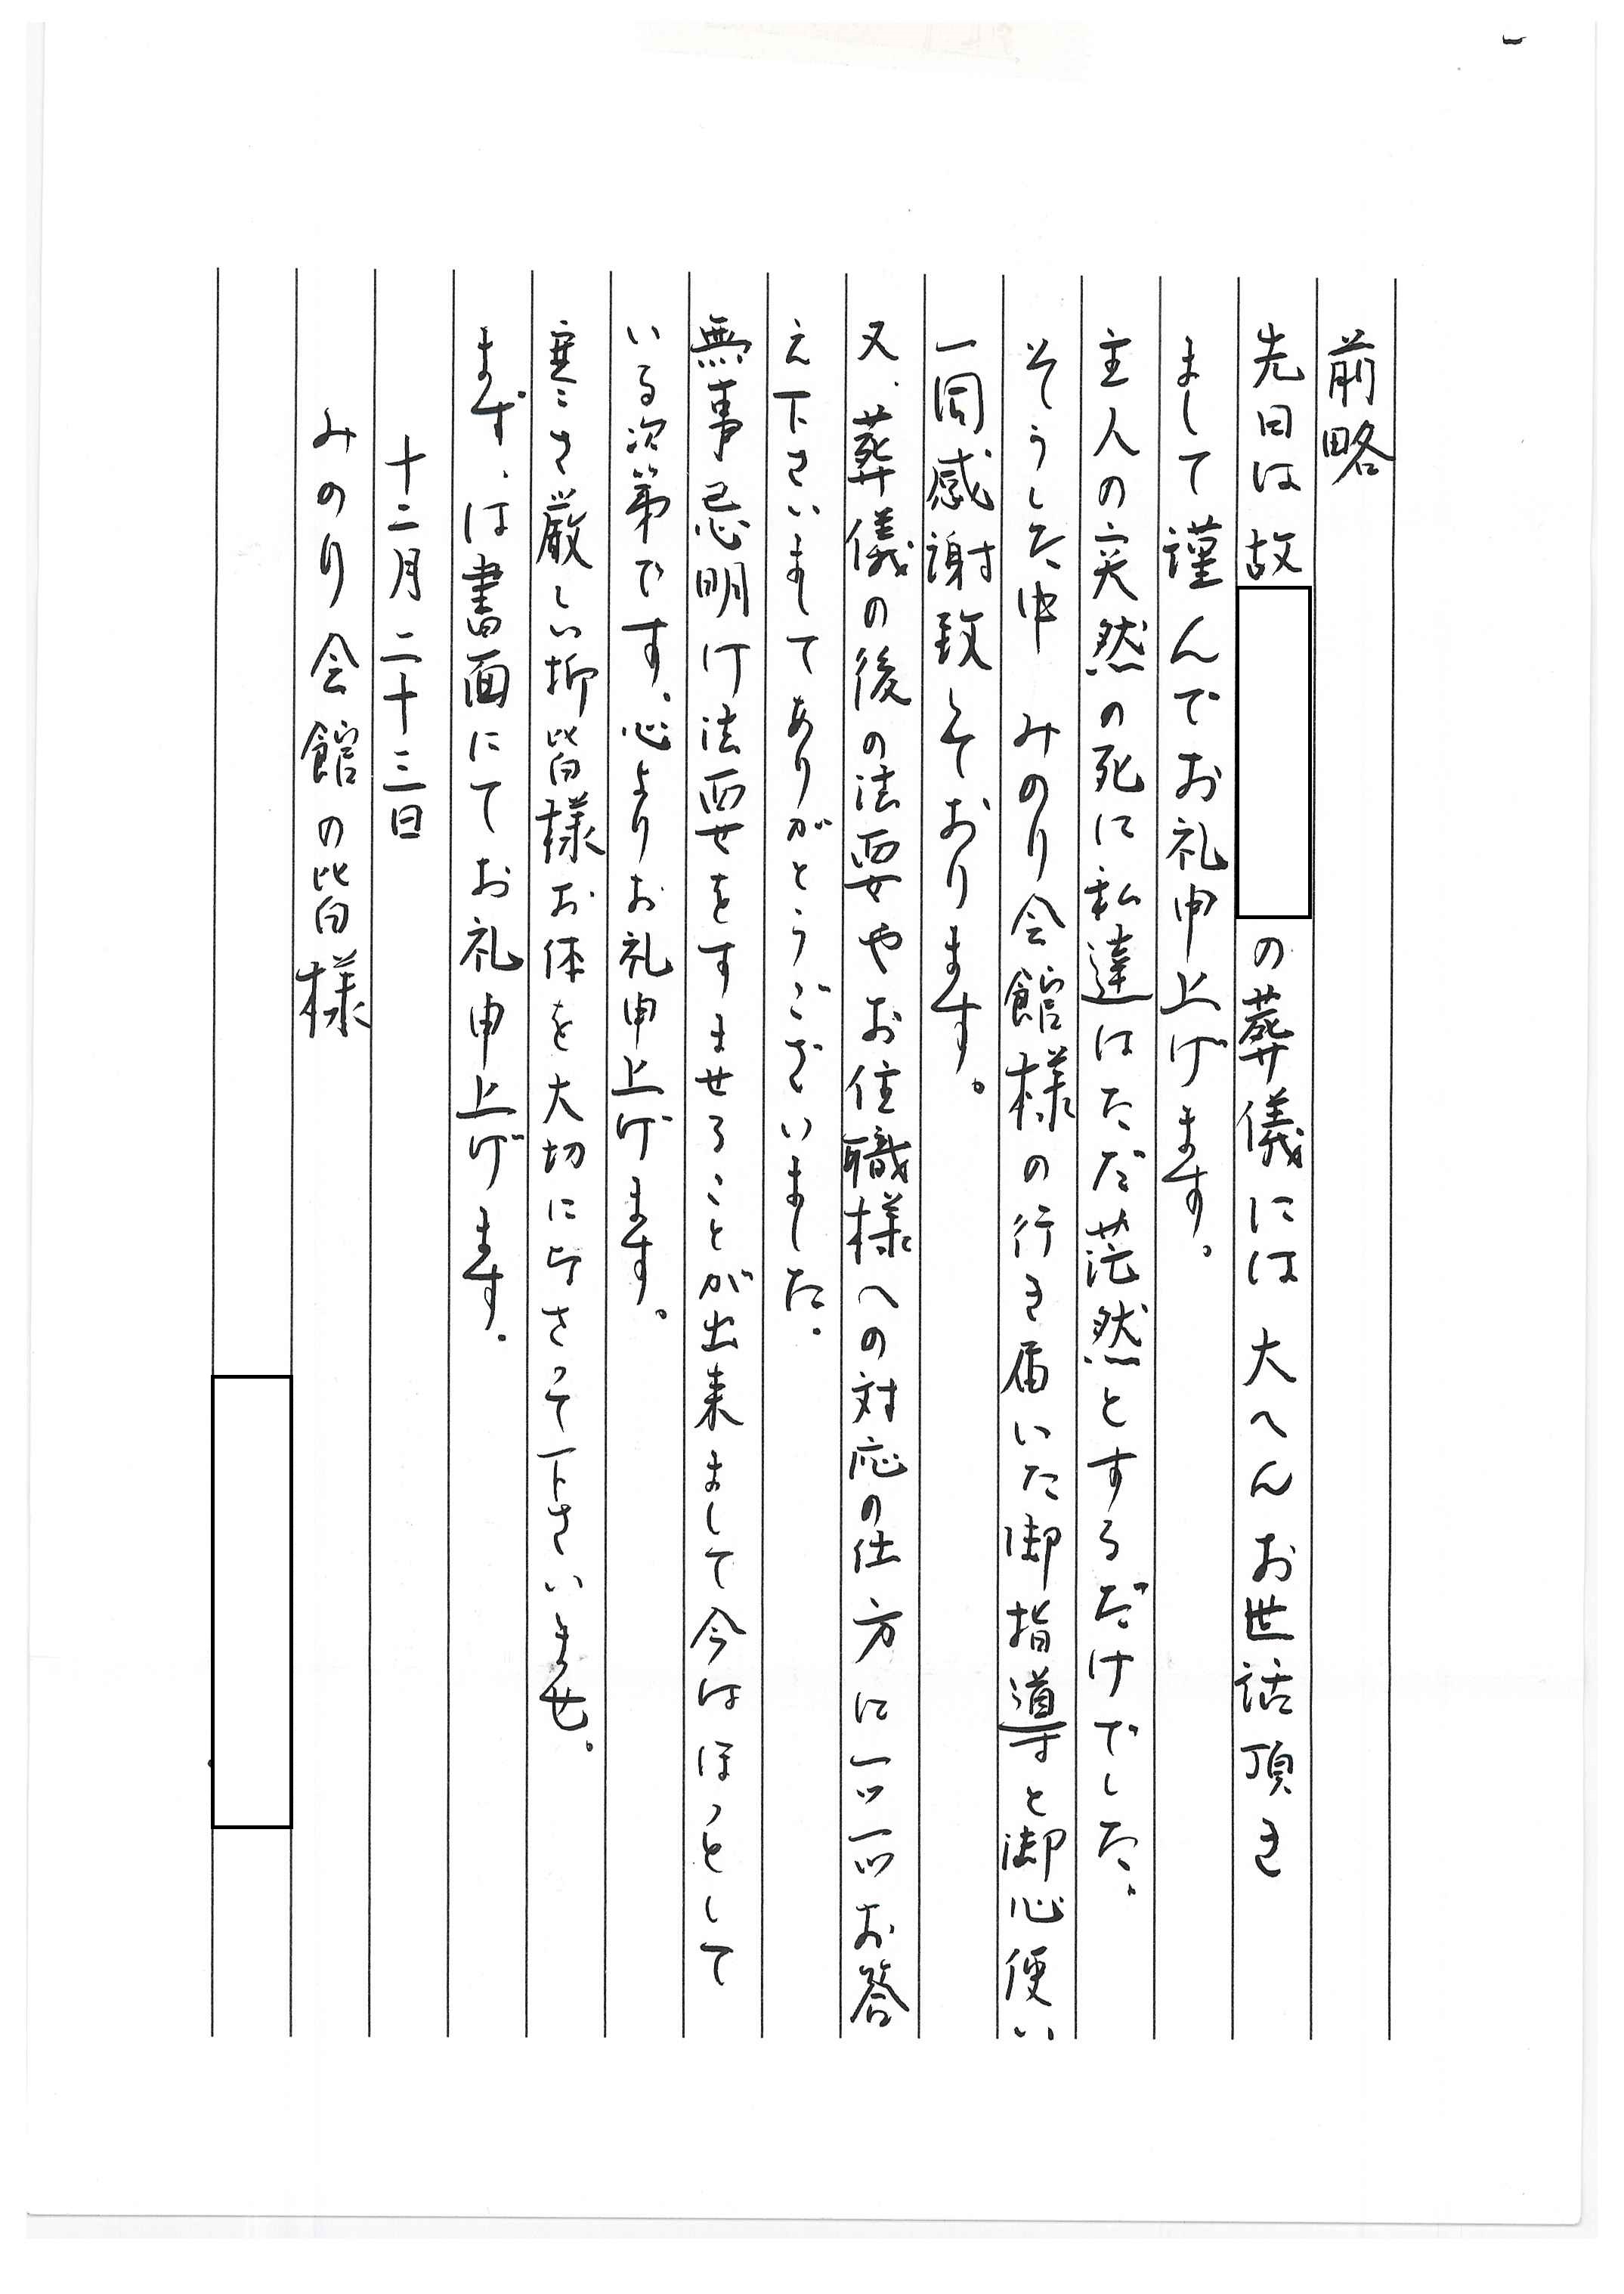 前略
先日は故
の葬儀には大へんお世話頂き
まして謹んでお礼申上げます。
主人の突然の死に私達はただ茫然とするだけでした。
そうした中 みのり会館様の行き届いた御指導と御心使い
一同感謝致しております。
又、葬儀の後の法要やお住職様への対応の仕方に一ツ一ツお答
え下さいましてありがとうございました。
無事忌明け法要をすませることが出来まして今はほっとして
いる次第です、心よりお礼申上げます。
寒さ厳しい折皆様お体を大切になさって下さいませ。
まずは書面にてお礼申上げます。
十二月二十三日
みのり会館の皆様